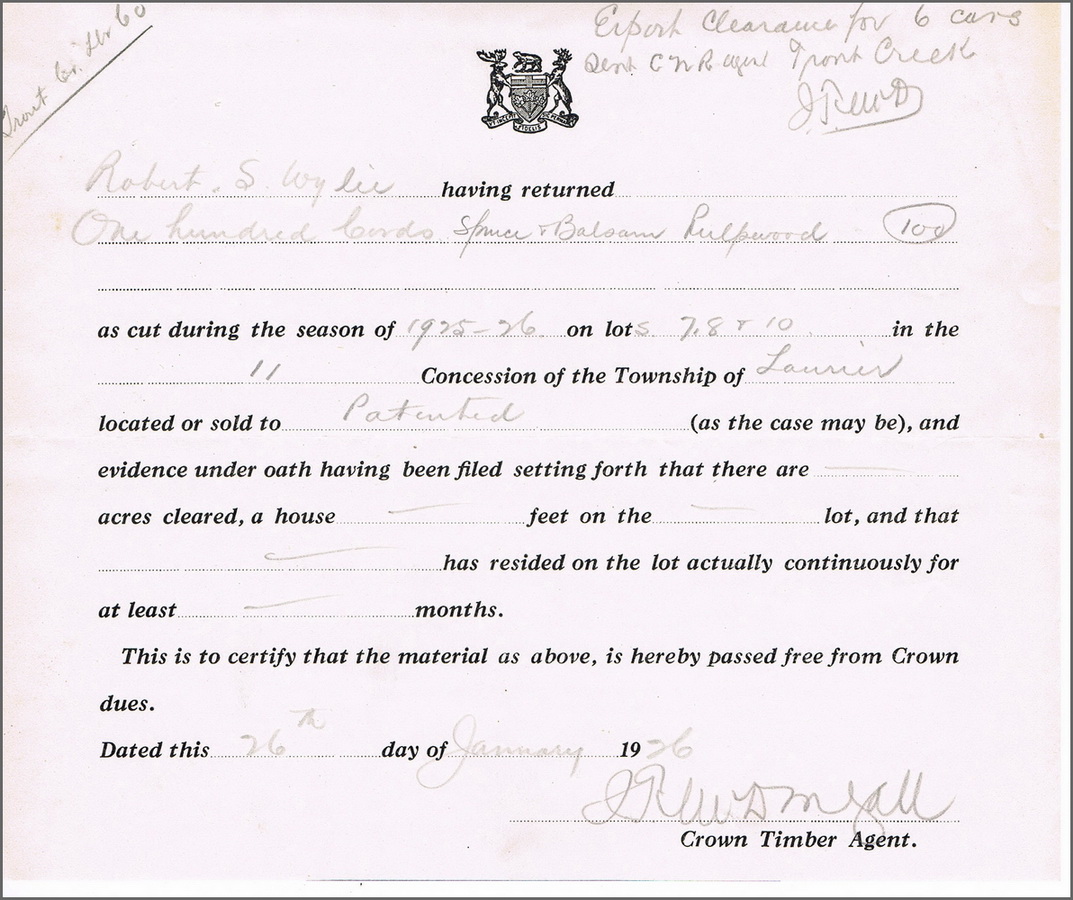 Trout Cr.
Export Clearance for 6 cars
sent C N R agent Trout Creek
J R McD
Robert. S. Wylie having returned
One hundred Cords Spruce & Balsam Pulpwood 100
as cut during the season of 1925-26 on lots 7,8 & 10 in the
11 Concession of the Township of Laurier
located or sold to Patented (as the case may be), and
evidence under oath having been filed setting forth that there are —
acres cleared, a house — feet on the — lot, and that
— has resided on the lot actually continuously for
at least — months.
This is to certify that the material as above, is hereby passed free from Crown
dues.
Dated this 26th day of January 1926
J R McDougall
Crown Timber Agent.